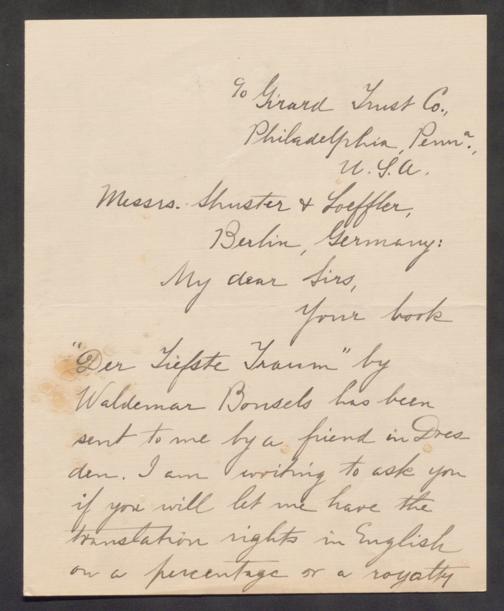 c/o Girard Trust Co.,
Philadelphia, Penna.,
U.S.A.
Messrs. Shuster & Loeffler,
Berlin, Germany:
My dear Sirs,
Your book
"Der Tiefste Traum" by
Waldemar Bonsels has been
sent to me by a friend in Dres
den. I am writing to ask you
if you will let me have the
translation rights in English
on a percentage or a royalty